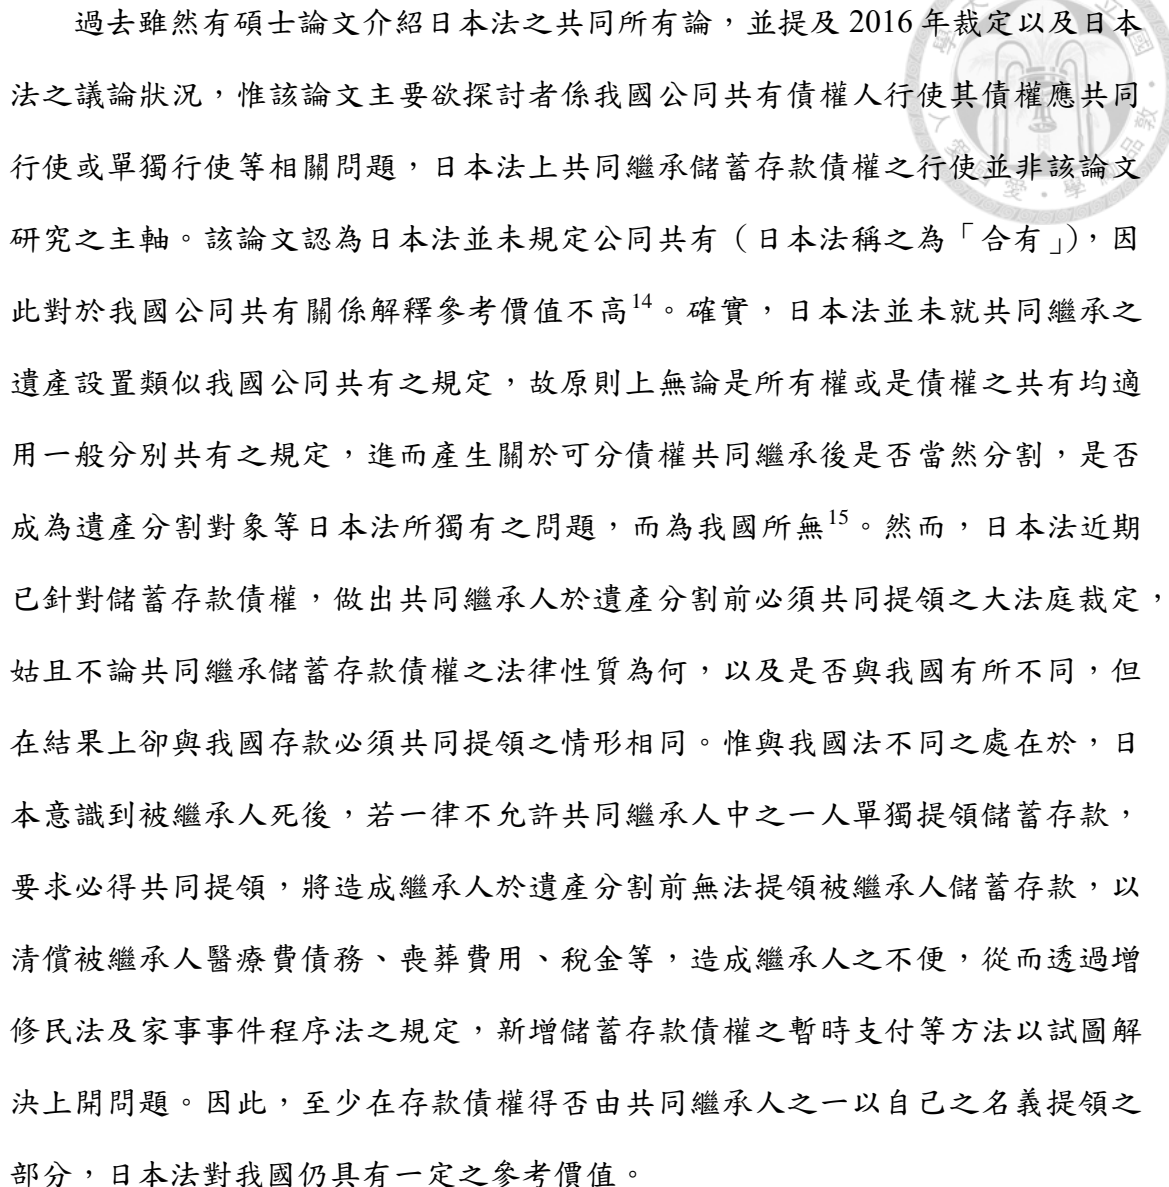 過去雖然有碩士論文介紹日本法之共同所有論，並提及 2016 年裁定以及日本
法之議論狀況，惟該論文主要欲探討者係我國公同共有債權人行使其債權應共同
行使或單獨行使等相關問題，日本法上共同繼承儲蓄存款債權之行使並非該論文
研究之主軸。該論文認為日本法並未規定公同共有（日本法稱之為「合有」），因
此對於我國公同共有關係解釋參考價值不高14。確實，日本法並未就共同繼承之
遺產設置類似我國公同共有之規定，故原則上無論是所有權或是債權之共有均適
用一般分別共有之規定，進而產生關於可分債權共同繼承後是否當然分割，是否
成為遺產分割對象等日本法所獨有之問題，而為我國所無15。然而，日本法近期
已針對儲蓄存款債權，做出共同繼承人於遺產分割前必須共同提領之大法庭裁定，
姑且不論共同繼承儲蓄存款債權之法律性質為何，以及是否與我國有所不同，但
在結果上卻與我國存款必須共同提領之情形相同。惟與我國法不同之處在於，日
本意識到被繼承人死後，若一律不允許共同繼承人中之一人單獨提領儲蓄存款，
要求必得共同提領，將造成繼承人於遺產分割前無法提領被繼承人儲蓄存款，以
清償被繼承人醫療費債務、喪葬費用、稅金等，造成繼承人之不便，從而透過增
修民法及家事事件程序法之規定，新增儲蓄存款債權之暫時支付等方法以試圖解
決上開問題。因此，至少在存款債權得否由共同繼承人之一以自己之名義提領之
部分，日本法對我國仍具有一定之參考價值。